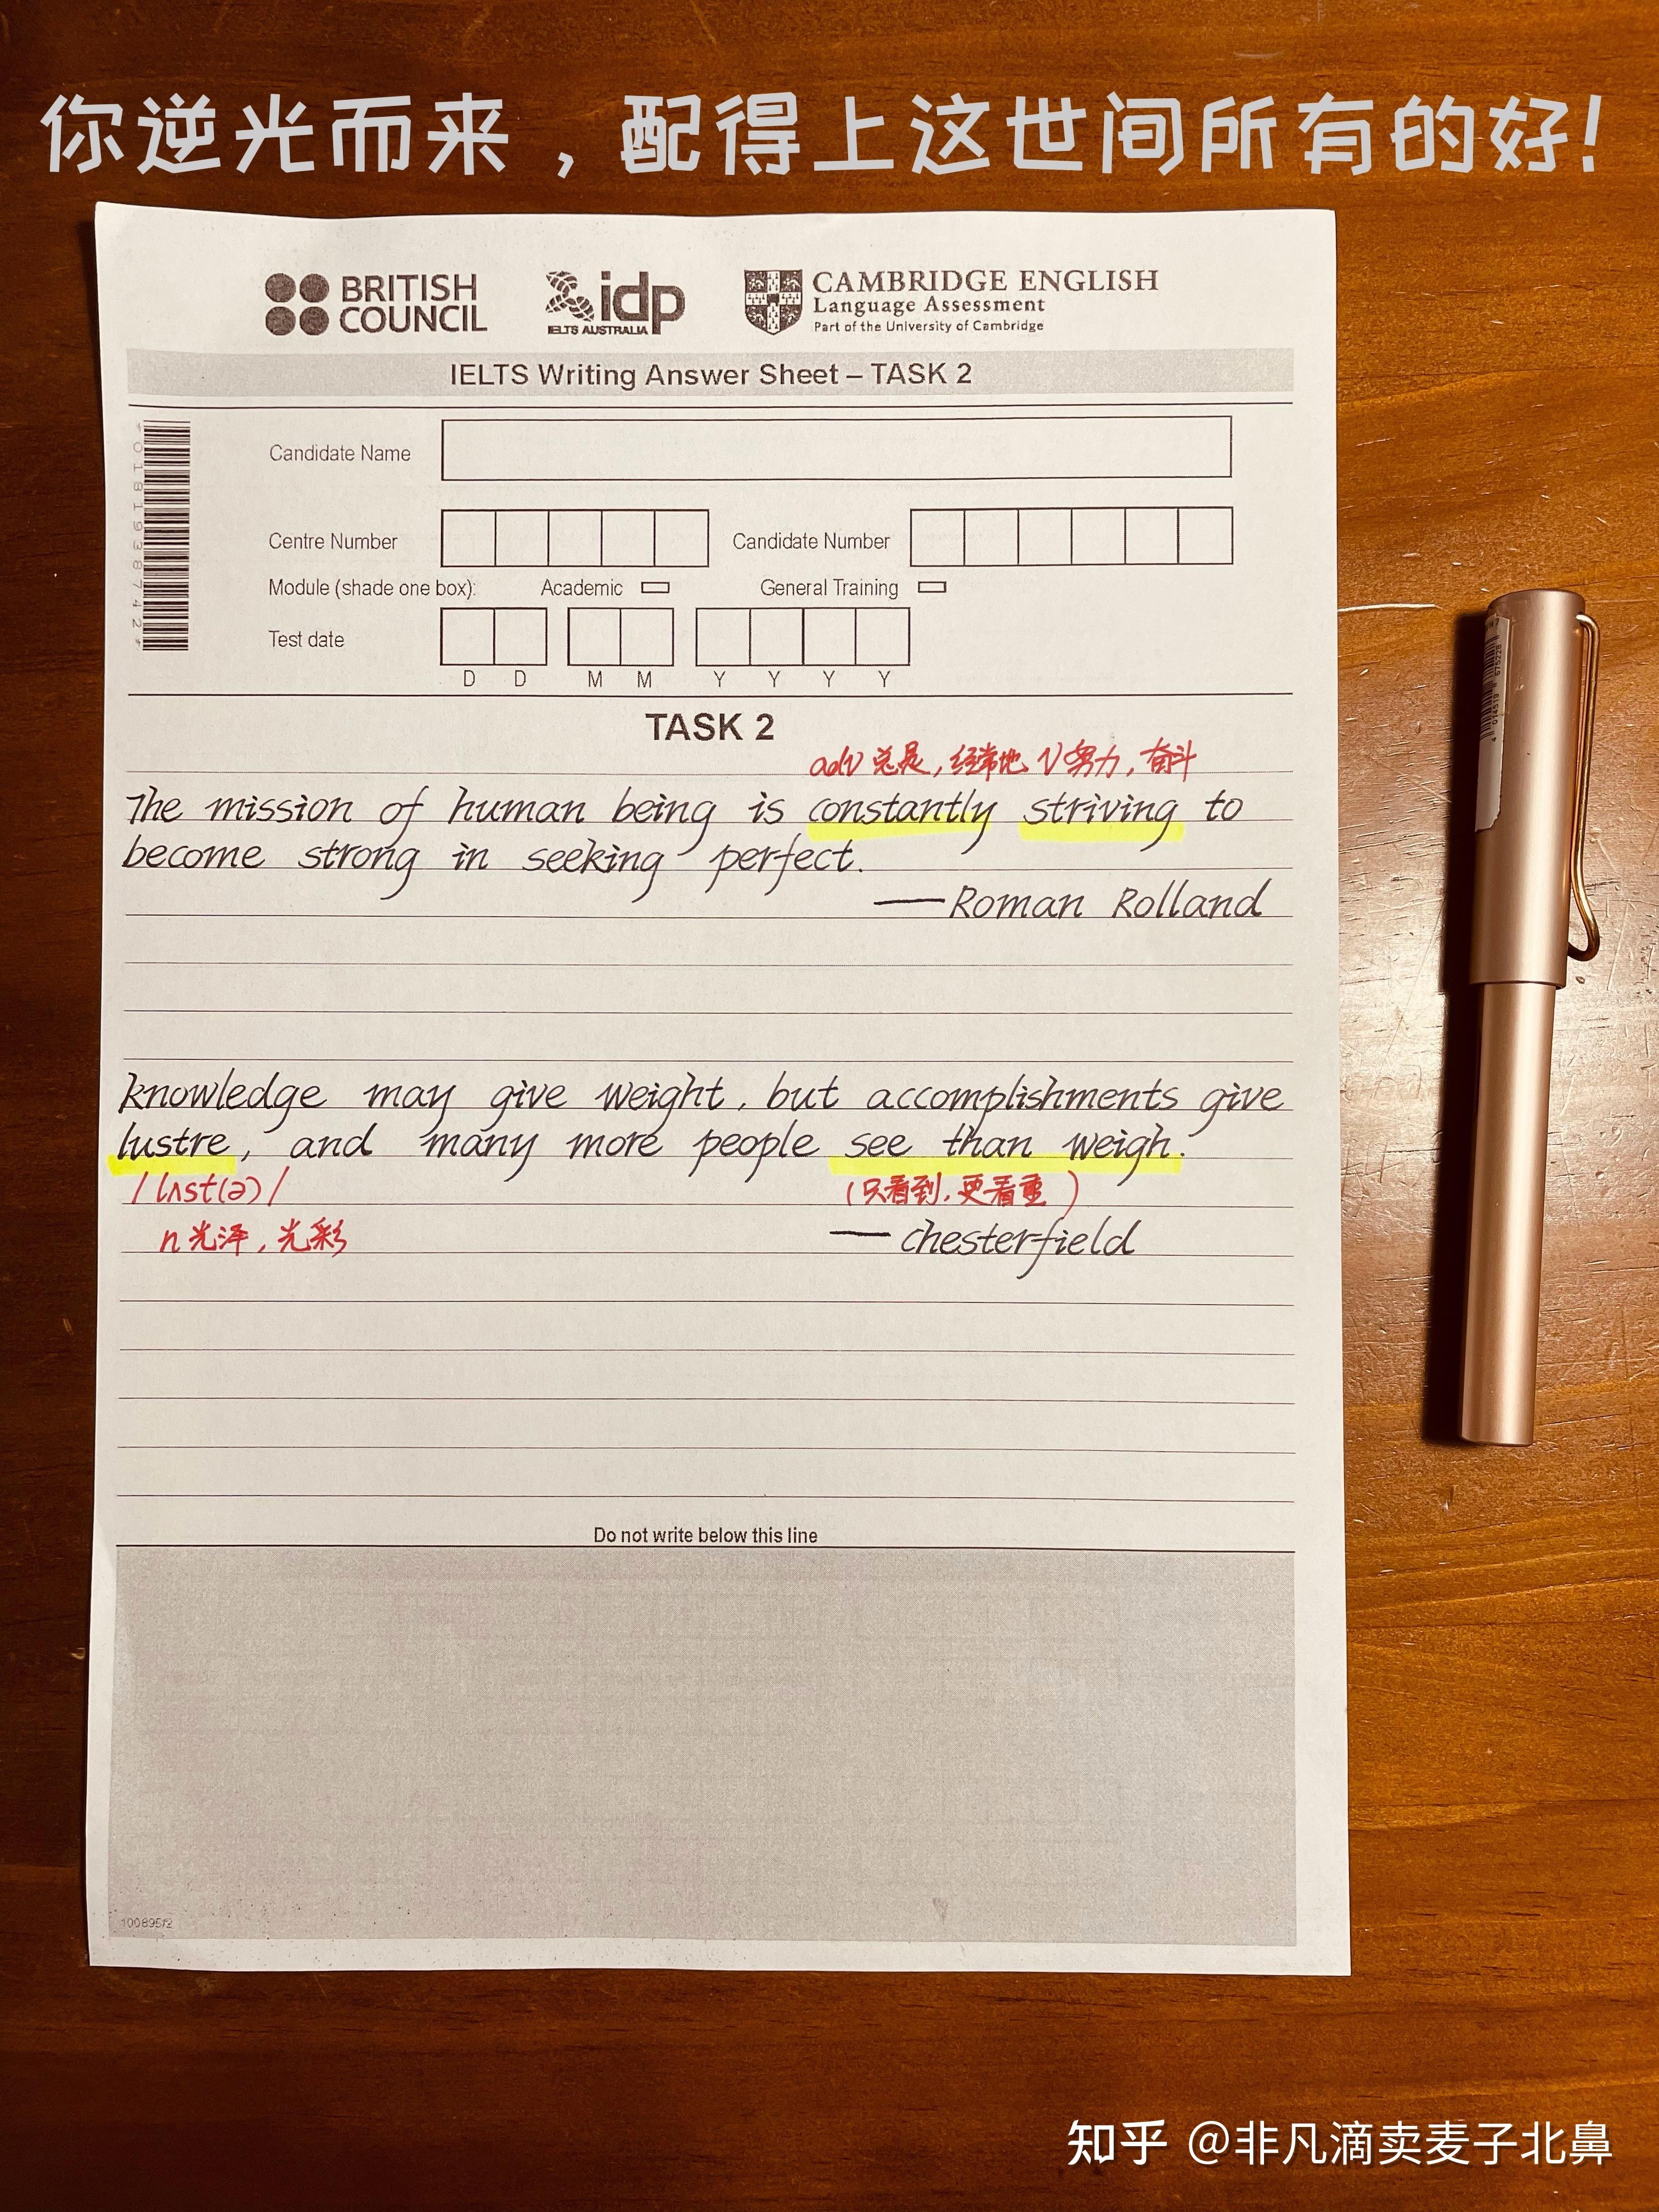 你逆光而来，配得上这世间所有的好!
BRITISH COUNCIL
idp
IELTS AUSTRALIA
CAMBRIDGE ENGLISH
Language Assessment
Part of the University of Cambridge
IELTS Writing Answer Sheet – TASK 2
Candidate Name
Centre Number Candidate Number
Module (shade one box): Academic General Training
Test date
D D M M Y Y Y Y
TASK 2
adv 总是, 经常地 V 努力, 奋斗
The mission of human being is constantly striving to
become strong in seeking perfect.
—Roman Rolland
knowledge may give weight, but accomplishments give
lustre, and many more people see than weigh.
/lʌst(ə)/ (只看到, 更看重)
n 光泽, 光彩 — chesterfield
Do not write below this line
100895/2
知乎 @非凡滴卖麦子北鼻